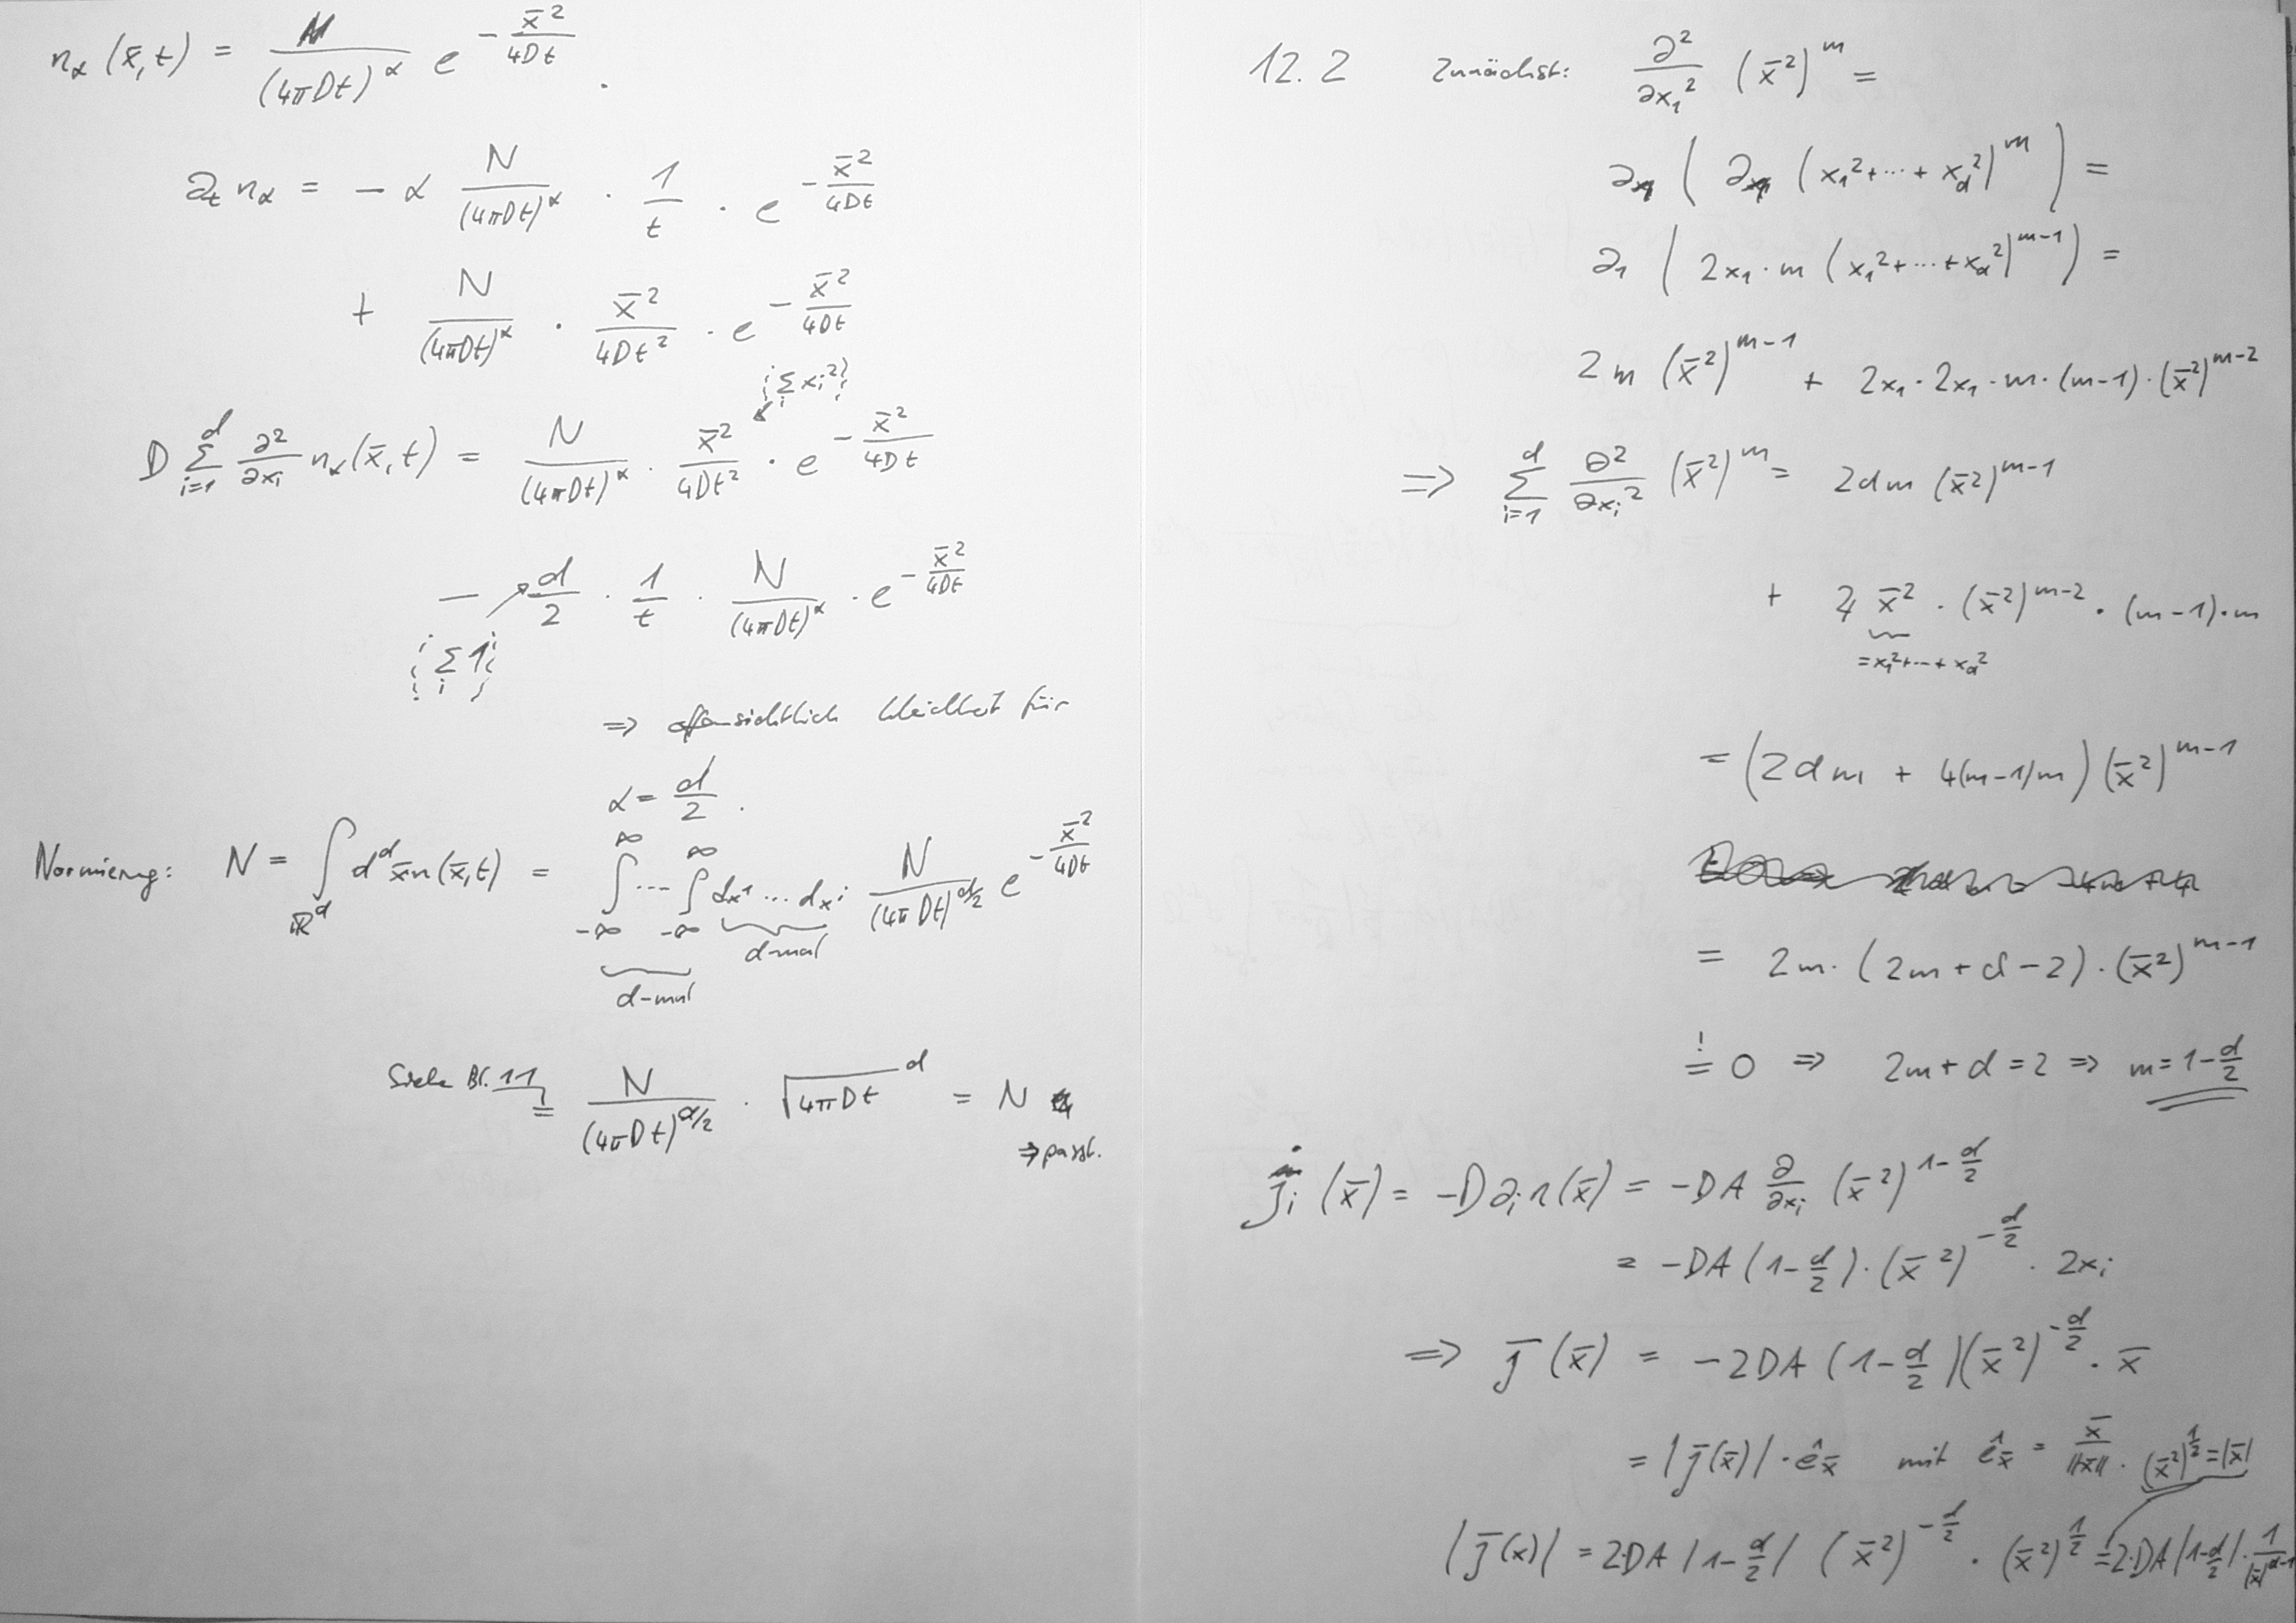 n_α(x̄,t) = N/(4πDt)^α e^{-x̄²/4Dt} .
∂_t n_α = - α N/(4πDt)^α · 1/t · e^{-x̄²/4Dt}
+ N/(4πDt)^α · x̄²/4Dt² · e^{-x̄²/4Dt}
(Σ_i x_i²)
D Σ_{i=1}^d ∂²/∂x_i n_α(x̄,t) = N/(4πDt)^α · x̄²/4Dt² · e^{-x̄²/4Dt}
- d/2 · 1/t · N/(4πDt)^α · e^{-x̄²/4Dt}
(Σ_i 1)
⇒ offensichtlich Gleichheit für
α = d/2 .
Normierung: N = ∫_{ℝ^d} d^d x̄ n(x̄,t) = ∫_{-∞}^{∞} ... ∫_{-∞}^{∞} dx¹ ... dx_i N/(4πDt)^{d/2} e^{-x̄²/4Dt}
d-mal d-mal
Siehe Bl. 11 = N/(4πDt)^{d/2} · √(4πDt)^d = N
⇒ passt.
12.2 Zunächst: ∂²/∂x_1² (x̄²)^m =
∂_1 ( ∂_1 (x_1² + ... + x_d²)^m ) =
∂_1 ( 2x_1 · m (x_1² + ... + x_d²)^{m-1} ) =
2m (x̄²)^{m-1} + 2x_1 · 2x_1 · m · (m-1) · (x̄²)^{m-2}
⇒ Σ_{i=1}^d ∂²/∂x_i² (x̄²)^m = 2dm (x̄²)^{m-1}
+ 4 x̄² · (x̄²)^{m-2} · (m-1) · m
= x_1² + ... + x_d²
= (2dm + 4(m-1)m) (x̄²)^{m-1}
= 2m · (2m + d - 2) · (x̄²)^{m-1}
!= 0 ⇒ 2m + d = 2 ⇒ m = 1 - d/2
j_i (x̄) = -D ∂_i n(x̄) = -DA ∂/∂x_i (x̄²)^{1-d/2}
= -DA (1 - d/2) · (x̄²)^{-d/2} · 2x_i
⇒ j̄ (x̄) = -2DA (1 - d/2)(x̄²)^{-d/2} · x̄
= |j̄(x̄)| · ê_x̄ mit ê_x̄ = x̄/||x̄|| . (x̄²)^{1/2} = |x̄|
|j̄(x)| = 2·DA |1 - d/2| (x̄²)^{-d/2} · (x̄²)^{1/2} = 2·DA |1 - d/2| · 1/|x̄|^{d-1}